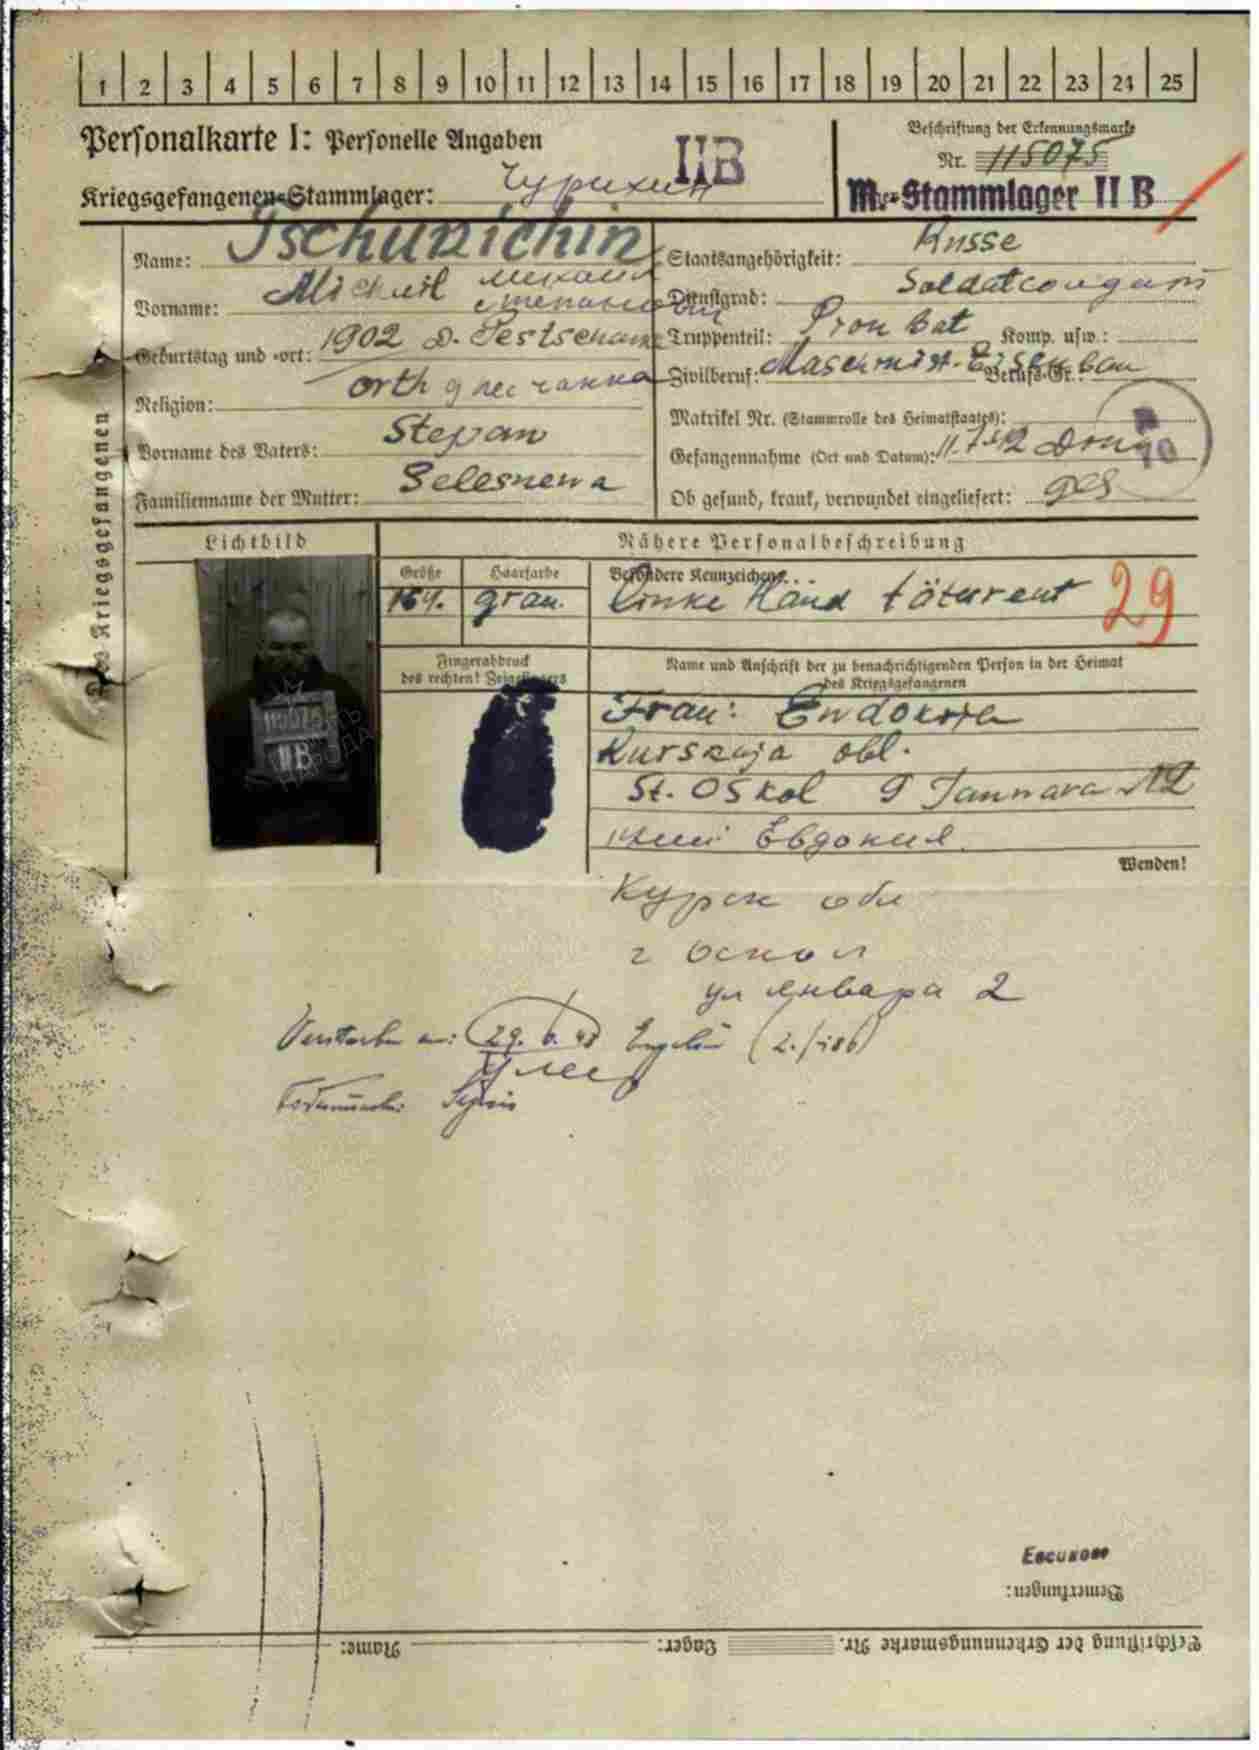 1 2 3 4 5 6 7 8 9 10 11 12 13 14 15 16 17 18 19 20 21 22 23 24 25
Personalkarte I: Personelle Angaben
IIB
Beschriftung der Erkennungsmarke
Nr. 115075
Kriegsgefangenen-Stammlager: Чурихин
M.-Stammlager II B
Des Kriegsgefangenen
Name: Tschurichin
Vorname: Michail Михаил
Степанович
Geburtstag und -ort: 1902 D. Pestschanka
Religion: orth д песчанка
Vorname des Vaters: Stepan
Familienname der Mutter: Selesnewa
Staatsangehörigkeit: Russe
Dienstgrad: Soldat солдат
Truppenteil: Bat Komp. usw.:
Zivilberuf: Maschinist-Eisenbau Berufs-Gr.:
Matrikel Nr. (Stammrolle des Heimatstaates):
Gefangennahme (Ort und Datum): 11.7.42 Don
70
Ob gesund, krank, verwundet eingeliefert: ges
Lichtbild
Nähere Personalbeschreibung
Größe
Haarfarbe
Besondere Kennzeichen:
164. grau. Linke Hand täturemt
29
Fingerabdruck
des rechten! Zeigefingers
Name und Anschrift der zu benachrichtigenden Person in der Heimat
des Kriegsgefangenen
IIB
Frau: Ewdokia
Kurskaja obl.
St. Oskol 9 Jannara №2
Евдокия
Wenden!
Курск обл
г Оскол
ул Января 2
Verstorben am: 29. 6. 43
Умер
Евсиково
Bemerkungen:
Beschriftung der Erkennungsmarke Nr. Lager: Name: